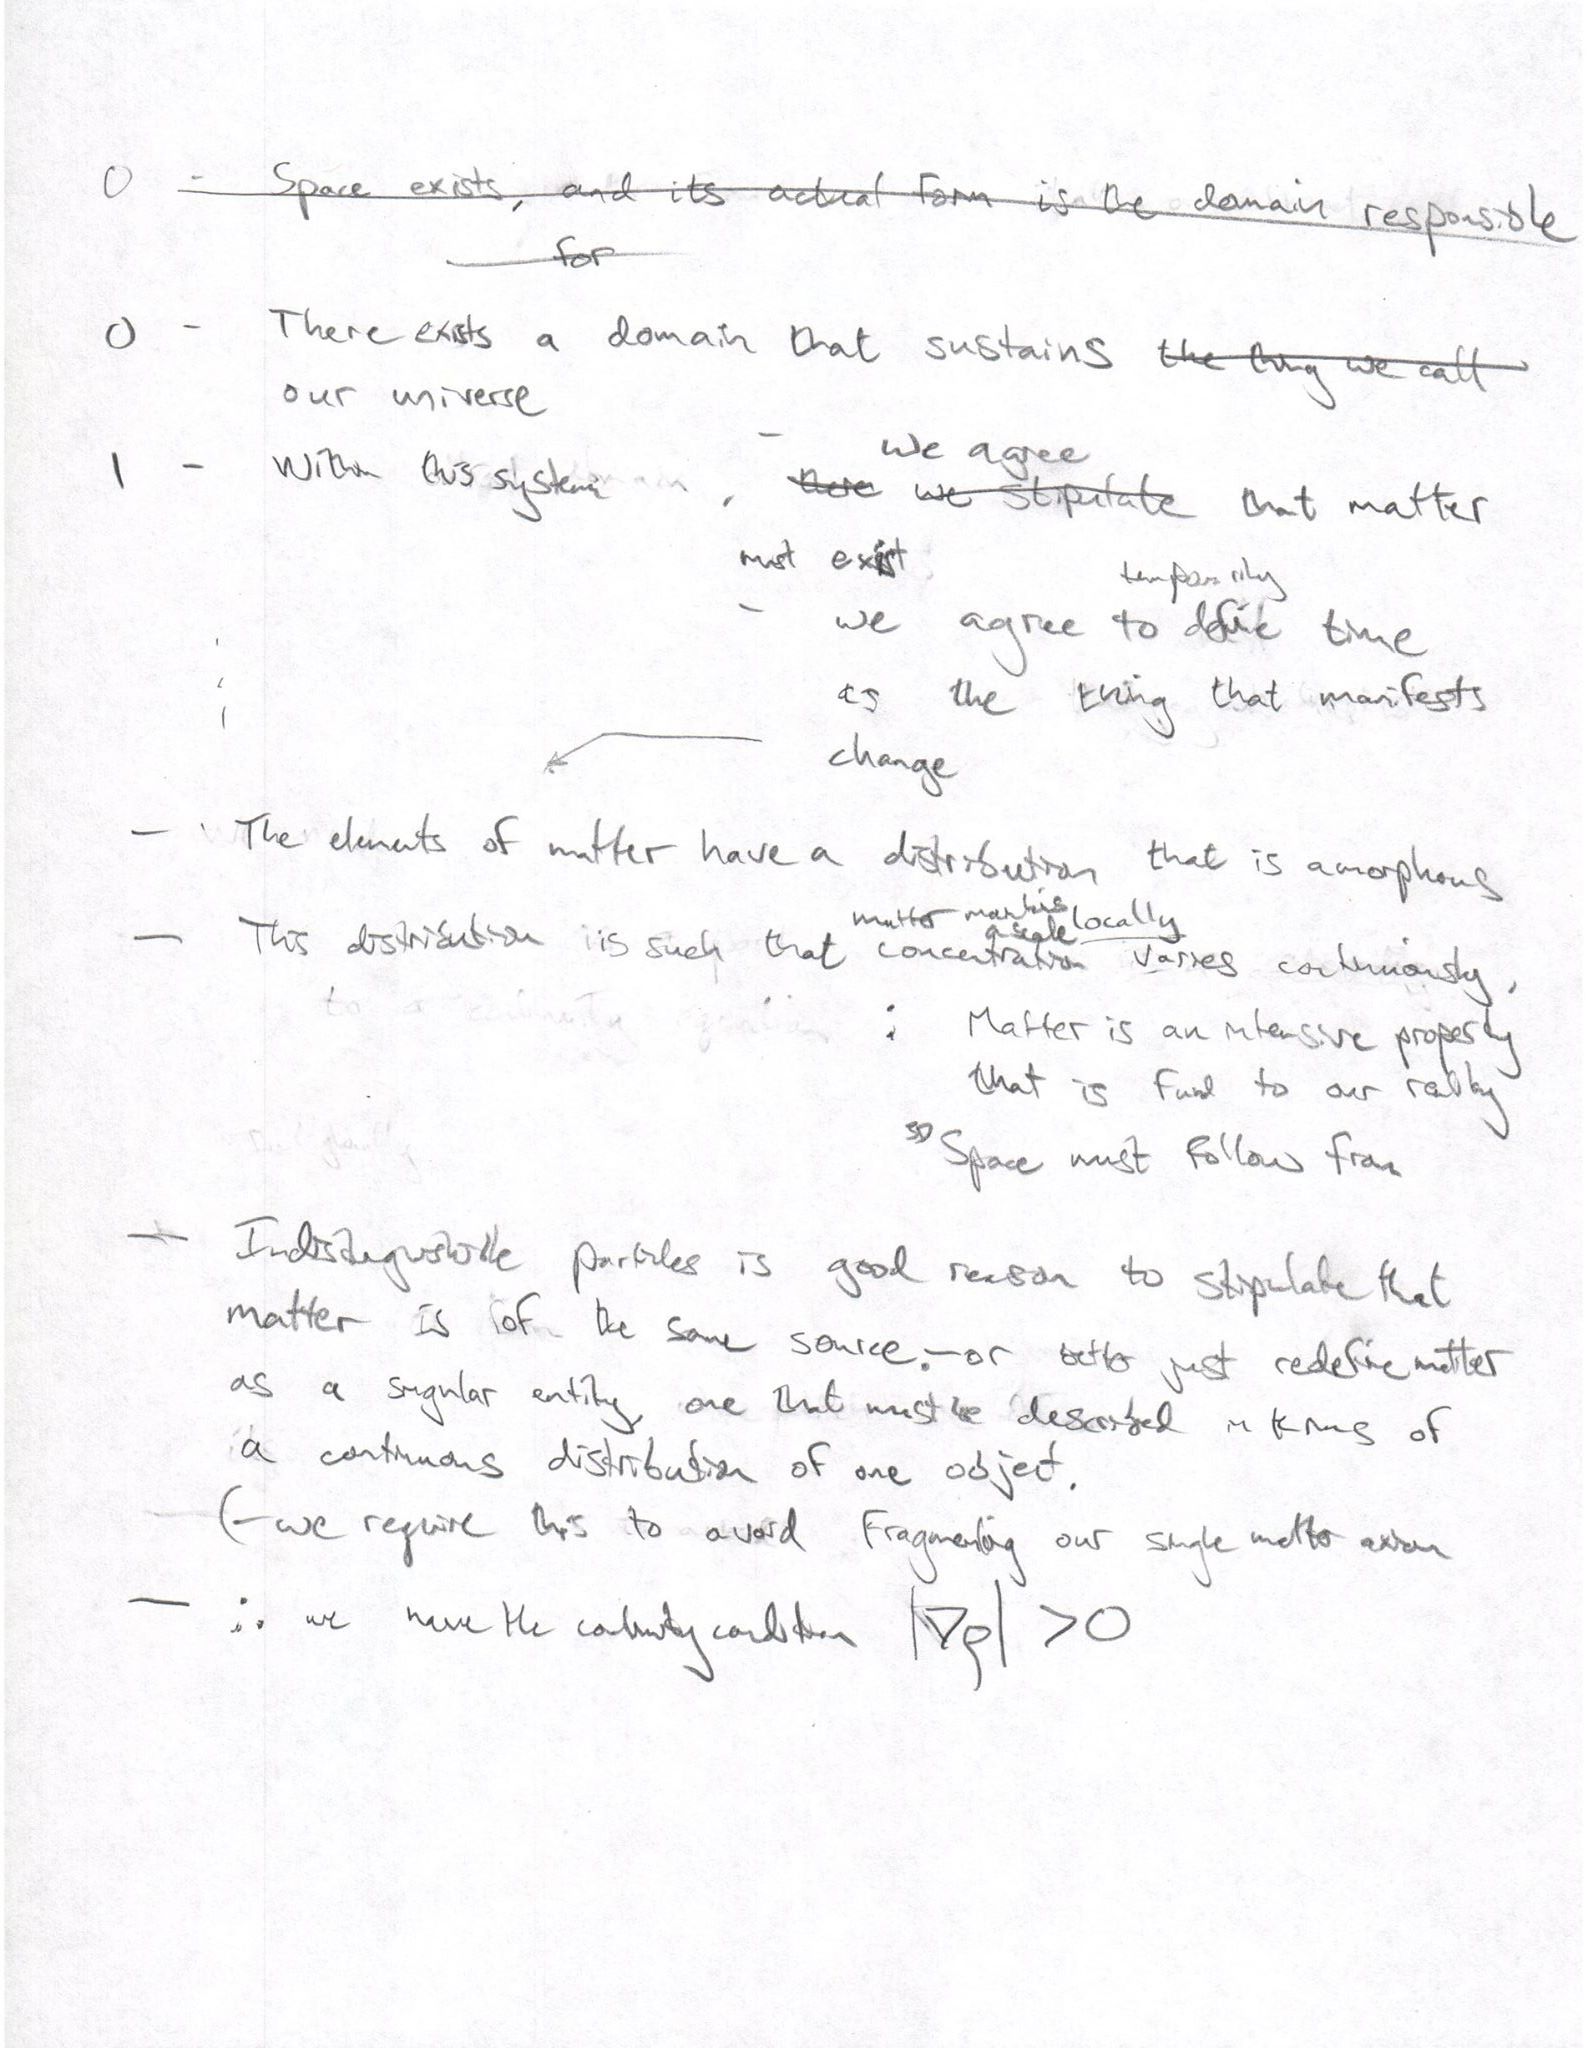 0 - Space exists, and its actual form is the domain responsible
for
0 - There exists a domain that sustains the thing we call
our universe
- we agree
1 - Within this system, there we stipulate that matter
must exist
temporarily
- we agree to define time
as the thing that manifests
change
- The elements of matter have a distribution that is amorphous
matter
a scale locally
- This distribution is such that concentration varies continuously.
: Matter is an intensive property
that is fund to our reality
3D Space must follow from
- Indistinguishible particles is good reason to stipulate that
matter is of the same source. - or just redefine matter
as a singular entity, one that must be described in terms of
a continuous distribution of one object.
(- we require this to avoid fragmenting our single matter axiom
- ∴ we have the continuity condition |∇ρ| > 0